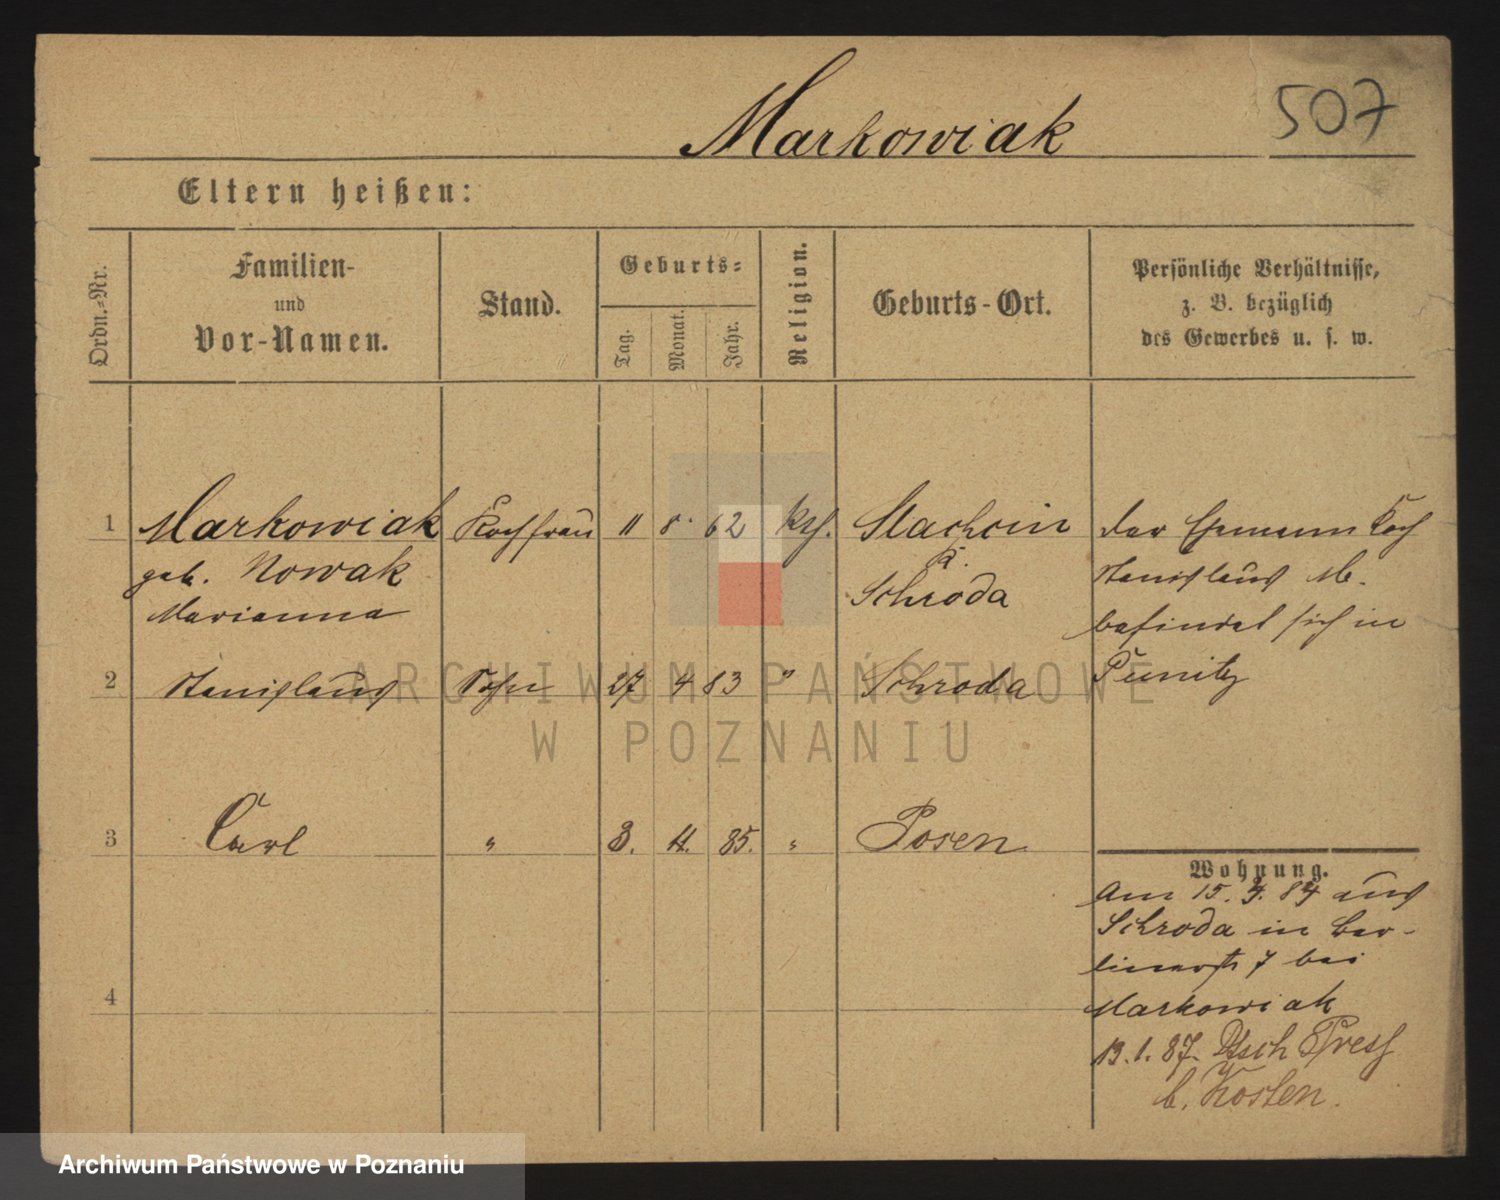 Markowiak
507
Eltern heißen:
Ordn.-Nr.
Familien-
und
Vor-Namen.
Stand.
Geburts-
Tag.
Monat.
Jahr.
Religion.
Geburts-Ort.
Persönliche Verhältnisse,
z. B. bezüglich
des Gewerbes u. s. w.
1 Markowiak Kochfrau 11 8. 62 kth. Stachcin
geb. Nowak K.
Marianna Schroda
Der Ehemann Koch
Stanislaus M.
befindet sich in
Punitz
2 Stanislaus Sohn 27 4 83 " Schroda
3 Carl " 3. 11. 85. " Posen
4
Wohnung.
Am 15. 4. 84 aus
Schroda in Ber-
linerstr 7 bei
Markowiak
13. 1. 87. Dtsch Presse
b. Kosten.
ARCHIWUM PAŃSTWOWE
W POZNANIU
Archiwum Państwowe w Poznaniu